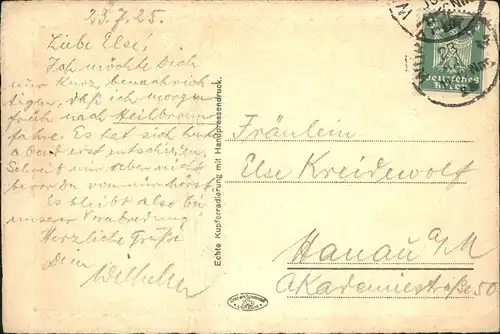 23.7.25.
Liebe Else!
Ich möchte Dich
nur kurz benachrich-
tigen, daß ich morgen
früh nach Heilbronn
fahre. Es hat sich heute
abend erst entschieden.
Schreib mir aber nicht
bevor du von mir hörst.
Es bleibt also bei
unserer Verabredung!
Herzliche Grüße
Dein
Wilhelm
Echte Kupferradierung mit Handpressendruck.
Deutsches
Reich
Fräulein
Else Kreidewolf
Hanau a/M
Akademiestraße 50